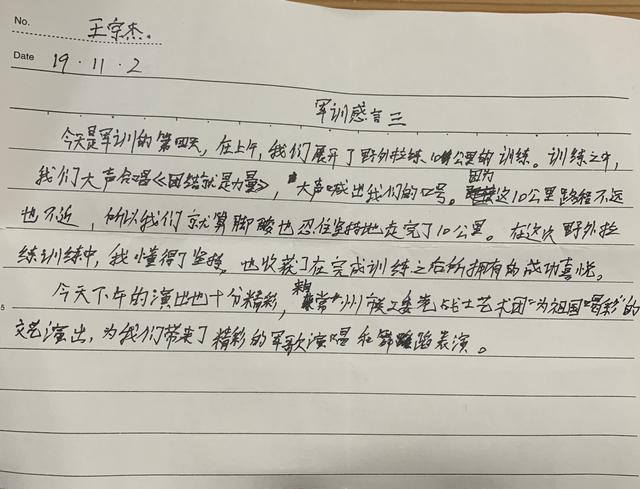 No. 王宗杰.
Date 19.11.2
军训感言三
今天是军训的第四天,在上午,我们展开了野外拉练10公里的训练。训练之中,
我们大声合唱《团结就是力量》,大声喊出我们的口号。因为这10公里路程不远
也不近,所以我们就算脚酸也忍住坚持地走完了10公里。在这次野外拉
练训练中,我懂得了坚持,也收获了在完成训练之后所拥有的成功喜悦。
今天下午的演出也十分精彩,常州战士艺术团“为祖国喝彩”的
文艺演出,为我们带来了精彩的军歌演唱和舞蹈表演。
5